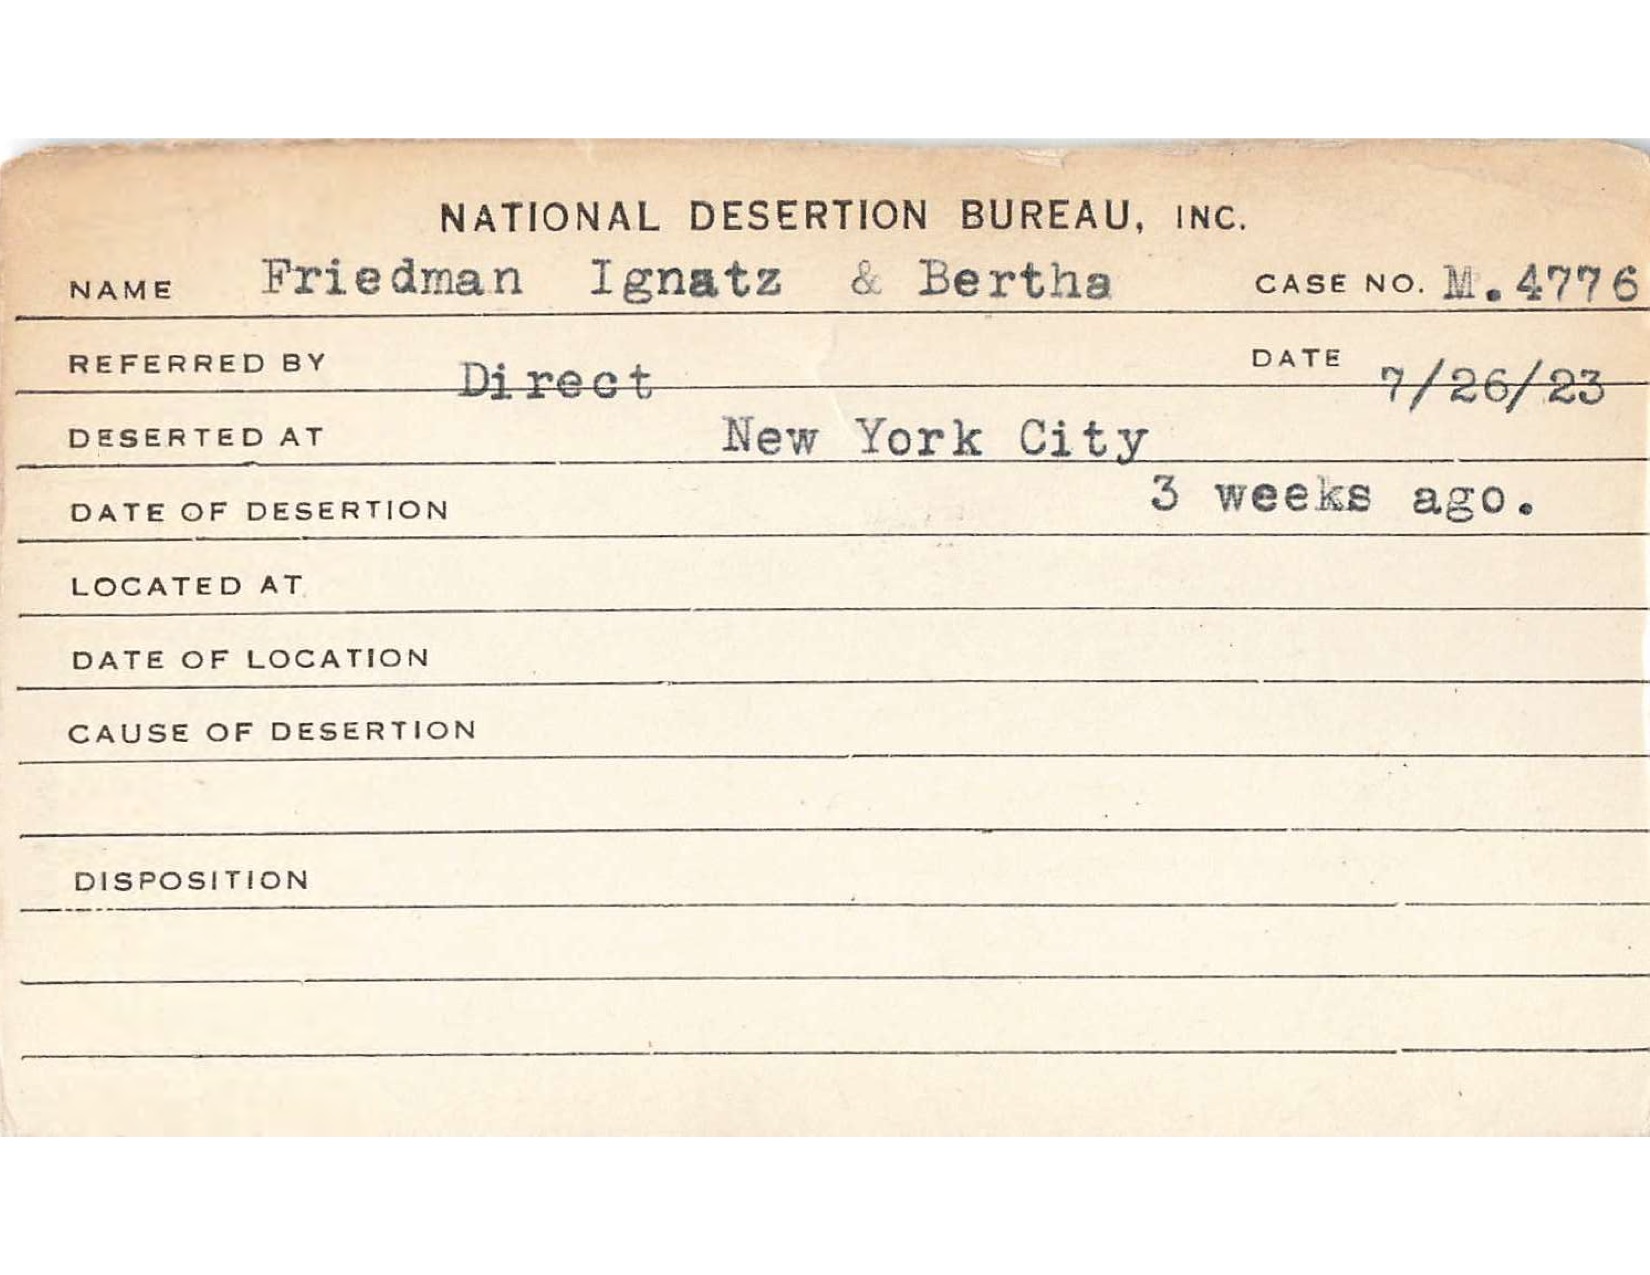 NATIONAL DESERTION BUREAU, INC.
NAME Friedman Ignatz & Bertha CASE NO. M.4776
REFERRED BY Direct DATE 7/26/23
DESERTED AT New York City
DATE OF DESERTION 3 weeks ago.
LOCATED AT
DATE OF LOCATION
CAUSE OF DESERTION
DISPOSITION